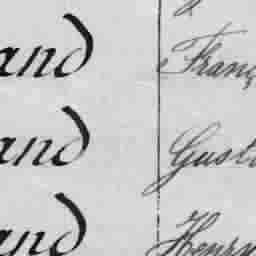 and Franç
and Gust
and Henry